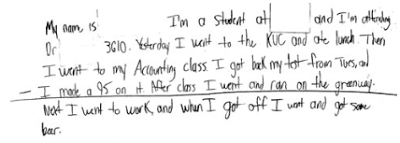 My name is I'm a student at and I'm attending
Dr 3610. Yesterday I went to the KUC and ate lunch. Then
I went to my Accounting class. I got back my test from Tues, and
I made a 95 on it. After class I went and ran on the greenway.
Next I went to work, and when I got off I went and got some
beer.